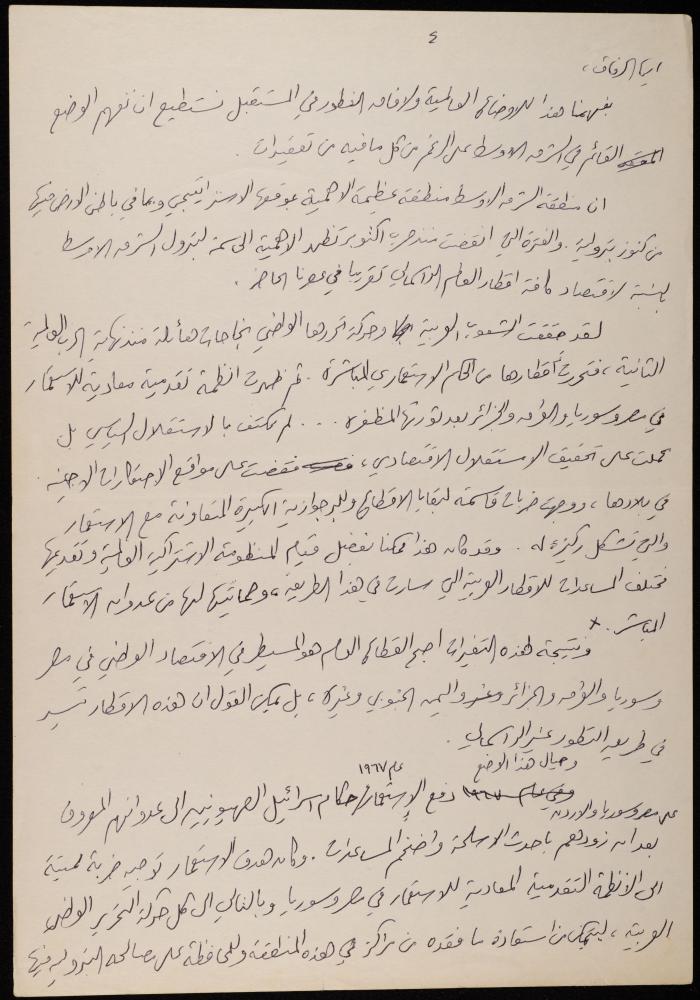 ٤
ايها الرفاق،
بفهمنا هذا للاوضاع العالمية ولافاق التطور في المستقبل نستطيع ان نفهم الوضع
القائم في الشرق الاوسط على الرغم من كل ما فيه من تعقيدات.
ان منطقة الشرق الاوسط منطقة عظيمة الاهمية بموقعها الاستراتيجي وبما في باطن الارض فيها
من كنوز بترولية. والفترة التي انقضت منذ حرب اكتوبر تظهر الاهمية الحاسمة لبترول الشرق الاوسط
بالنسبة لاقتصاد كافة اقطار العالم الرأسمالي تقريبا في عصرنا الحاضر.
لقد حققت الشعوب العربية وحركة تحررها الوطني نجاحات هائلة منذ نهاية الحرب العالمية
الثانية، فتحررت أقطارها من الحكم الاستعماري المباشرة. ثم ظهرت انظمة تقدمية معادية للاستعمار
في مصر وسوريا والعراق والجزائر بعد ثورتها المظفرة ... لم تكتف بالاستقلال السياسي بل
عملت على تحقيق الاستقلال الاقتصادي، فقضت على مواقع الاحتكارات الاجنبية
في بلادها، ووجهت ضربات قاسمة لبقايا الاقطاع وللبرجوازية الكبيرة المتعاونة مع الاستعمار
والتي تشكل ركيزة له. وقد كان هذا ممكنا بفضل قيام المنظومة الاشتراكية العالمية وتقديمها
مختلف المساعدات للاقطار العربية التي سارت في هذا الطريق، وحمايتها لها من عدوان الاستعمار
المباشر. x
ونتيجة لهذه التغيرات اصبح القطاع العام هو المسيطر في الاقتصاد الوطني في مصر
وسوريا والعراق والجزائر واليمن الجنوبي وغيرها، بل يمكن القول ان هذه الاقطار تسير
في طريق التطور غير الرأسمالي.
وحيال هذا الوضع
عام ١٩٦٧
وفي عام ١٩٦٧ دفع الاستعمار حكام اسرائيل الصهيونيين الى عدوانهم المعروف
على مصر وسوريا والاردن
بعد ان زودهم باحدث الاسلحة واضخم المساعدات. وكان هدف الاستعمار توجيه ضربة مميتة
الى الانظمة التقدمية المعادية للاستعمار في مصر وسوريا وبالتالي الى كل حركة التحرر الوطني
العربية، ليتمكن من استعادة ما فقده من مراكز في هذه المنطقة وللمحافظة على مصالحه البترولية فيها